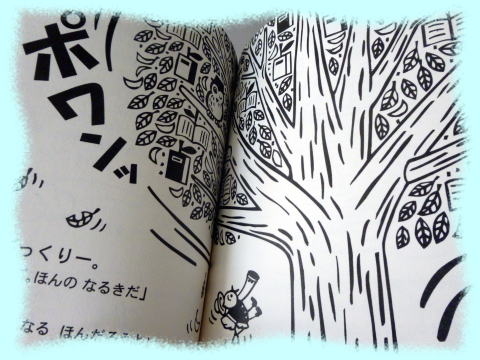 ポワンッ
っくりー。
。ほんの なるきだ」
なる ほんだ